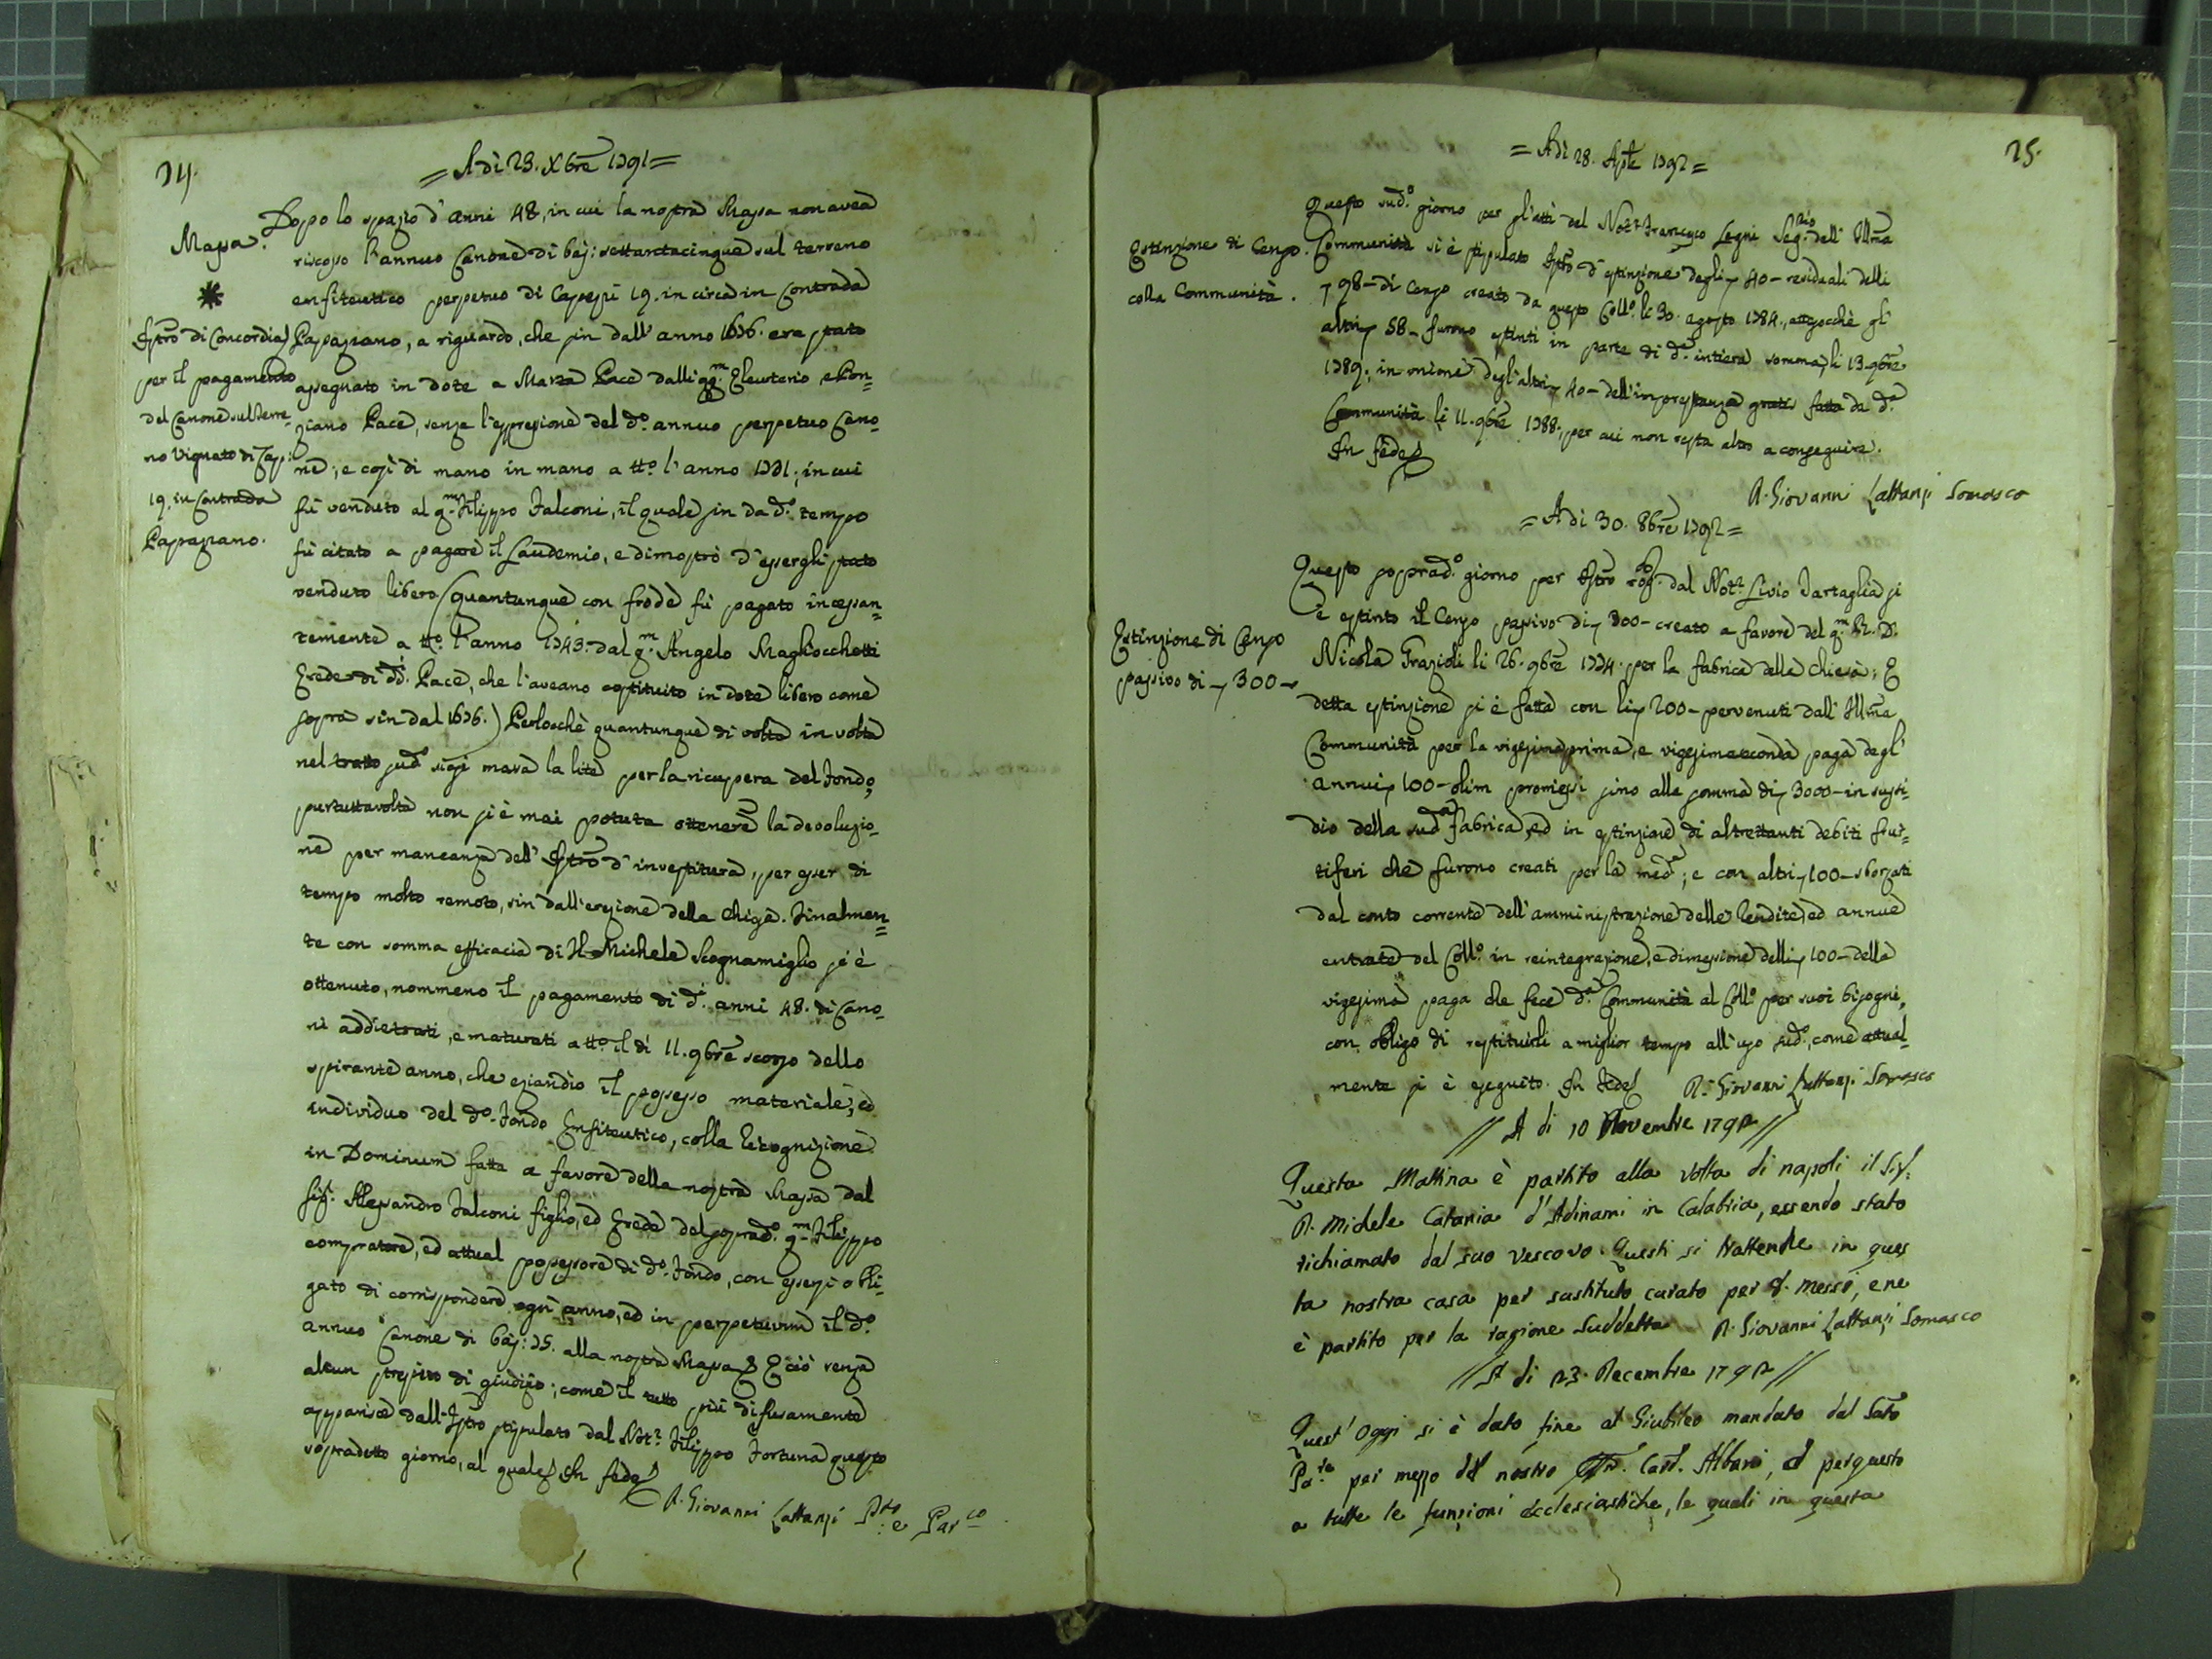 24.
= Adì 23. Xbrē 1791 =
Massa.
Istrō di Concordia
per il pagamento
del Canone sul terre-
no Vignato di Capp:
19. in Contrada
Papazzano.
Dopo lo spazio d'anni 48, in cui la nostra Massa non avea
riscosso l'annuo Canone di baj: settantacinque sul terreno
enfiteutico perpetuo di Cappezzi 19. in circa in Contrada
Papazzano, a riguardo, che sin dall'anno 1676. era stato
assegnato in dote a Marza Pace dalli qq.m Eleuterio, e Pon=
ziano Pace, senza l'espressione del d.o annuo perpetuo Cano=
ne; e così di mano in mano a tt.o l'anno 1731; in cui
fù venduto al q.m Filippo Falconi, il quale sin da d.o tempo
fù citato a pagare il Laudemio, e dimostrò d'essergli stato
venduto libero (quantunque con frode fù pagato incessan=
temente a tt.o l'anno 1743. dal q.m Angelo Magliocchetti
Erede di dd.i Pace, che l'aveano costituito in dote libero come
sopra sin dal 1676.) Perlocchè quantunque di volta in volta
nel tratto sud.o siasi mossa la lite per la ricupera del Fondo;
pertuttavolta non si è mai potuta ottenere la devoluzio=
ne per mancanza dell'Istrō d'investitura, per esser di
tempo molto remoto, sin dall'erezione della Chiesa. Finalmen=
te con somma efficacia di Michele Scognamiglio si è
ottenuto, nommeno il pagamento di d.i anni 48. di Cano=
ni addietrati, e maturati a tt.o il dì 11. 9brē scorso dello
spirante anno, che eziandio il possesso materiale, ed
individuo del d.o Fondo Enfiteutico, colla Recognizione
in Dominum fatta a favore della nostra Massa dal
Sig.r Alessandro Falconi figlio, ed Erede del soprad.o q.m Filippo
compratore, ed attual possessore di d.o Fondo, con essersi obli=
gato di corrispondere ogni anno, ed in perpetuum il d.o
annuo Canone di baj: 75. alla nostra Massa E ciò senza
alcun strepito di giudizio; come il tutto più difusamente
apparisce dall'Istrō stipulato dal Not.r Filippo Fortuna questo
sopradetto giorno, al quale In fede
D. Giovanni Lattanzi Pto e Par.co
25.
= Adì 28. Aple 1792 =
Estinzione di Censo
colla Communità.
Questo sud.o giorno per gl'atti del Not.r Francesco Legni Seg.rio dell'Illm̄a
Communità si è stipulato Istrō d'estinzione degli 40 - residuali delli
98 - di Censo creato da questo Coll.o li 30. agosto 1784., attesocchè gl'
altri 58 - furono estinti in parte di d.a intiera somma li 13. 9brē
1789; in unione degl'altri 40 - dell'imprestanza gratis fatta da d.a
Communità li 11. 9brē 1788; per cui non resta altro a conseguire.
In fede
D. Giovanni Lattanzi Somasco
= Adì 30. 8brē 1792 =
Estinzione di Censo
passivo di 300 -
Questo soprad.o giorno per Istrō rog.o dal Not.r Livio Tartaglia si
è estinto il Censo passivo di 300 - creato a favore del q.m R. D.
Nicola Grazioli li 26. 9brē 1774. per la fabrica della Chiesa; E
detta estinzione si è fatta con li 200 - pervenuti dall'Illm̄a
Communità per la vigesimaprima, e vigesimaseconda paga degl'
annui 100 - olim promessi sino alla somma di 3000 - in sussi=
dio della sud.a fabrica, ed in estinzione di altrettanti debiti frut=
tiferi che furono creati per la med.a; e con altri 100 - sborzati
dal conto corrente dell'amministrazione delle Rendite, ed annue
entrate del Coll.o in reintegrazione, e dimessione delli 100 - della
vigesima paga che fece d.a Communità al Coll.o per suoi bisogni,
con obligo di restituirli a miglior tempo all'uso sud.o, come attual=
mente si è eseguito. In Fede D. Giovanni Lattanzi Somasco
// A di 10 Novembre 1792 //
Questa Mattina è partito alla volta di napoli il Sig.
D. Michele Catania d'Adinami in Calabria, essendo stato
richiamato dal suo vescovo. Questi si trattenne in ques
ta nostra casa per sustituto curato per 8. messi, e ne
è partito per la ragione Suddetta D. Giovanni Lattanzi Somasco
// A di 23. Decembre 1792 //
Quest'Oggi si è dato fine al Giubileo mandato dal Sāto
Pa.re per mezzo del nostro Card. Albani, ed per questo
a tutte le funzioni Ecclesiastiche, le quali in questa